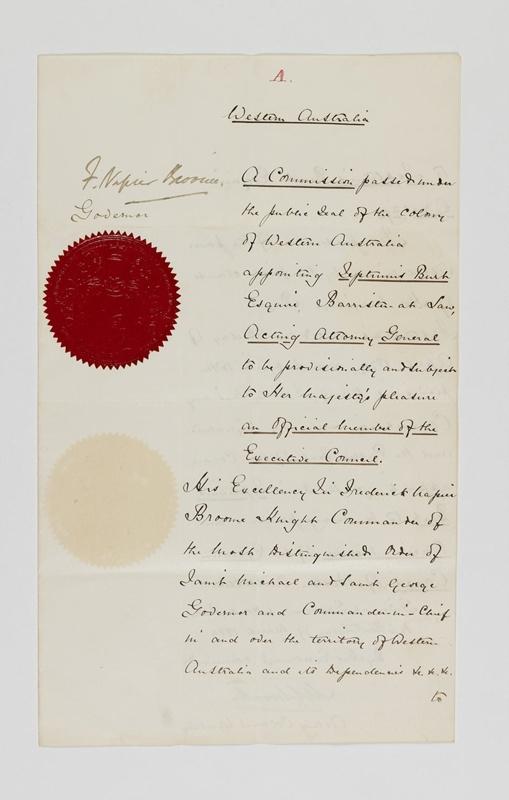 A.
Western Australia
F. Napier Broome.
Governor
A Commission passed under
the public Seal of the Colony
of Western Australia
appointing Septimus Burt
Esquire, Barrister-at Law,
Acting Attorney General
to be provisionally and subject
to Her Majesty's pleasure
an official Member of the
Executive Council.
His Excellency Sir Frederick Napier
Broome Knight Commander of
the Most Distinguished Order of
Saint Michael and Saint George
Governor and Commander-in-Chief
in and over the territory of Western
Australia and its Dependencies &c. &c. &c.
to